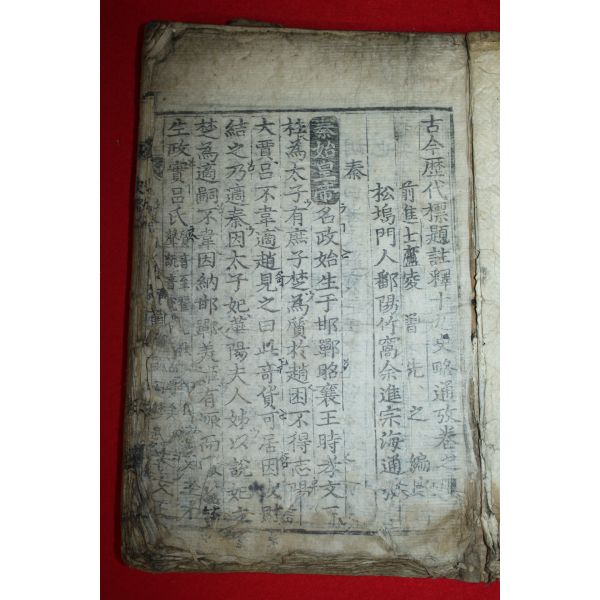 古今歷代標題註釋十九史略通攷卷之
前進士廬陵曾先之編
松塢門人鄱陽竹窩余進宗海通攷
秦
秦始皇帝名政始生于邯鄲昭襄王時孝文王
柱為太子有庶子楚為質於趙困不得志陽
大賈呂不韋適趙見之曰此奇貨可居因以財
結之乃適秦因太子妃華陽夫人姉以說妃立
楚為適嗣不韋因納邯鄲美姬有娠而
生政實呂氏